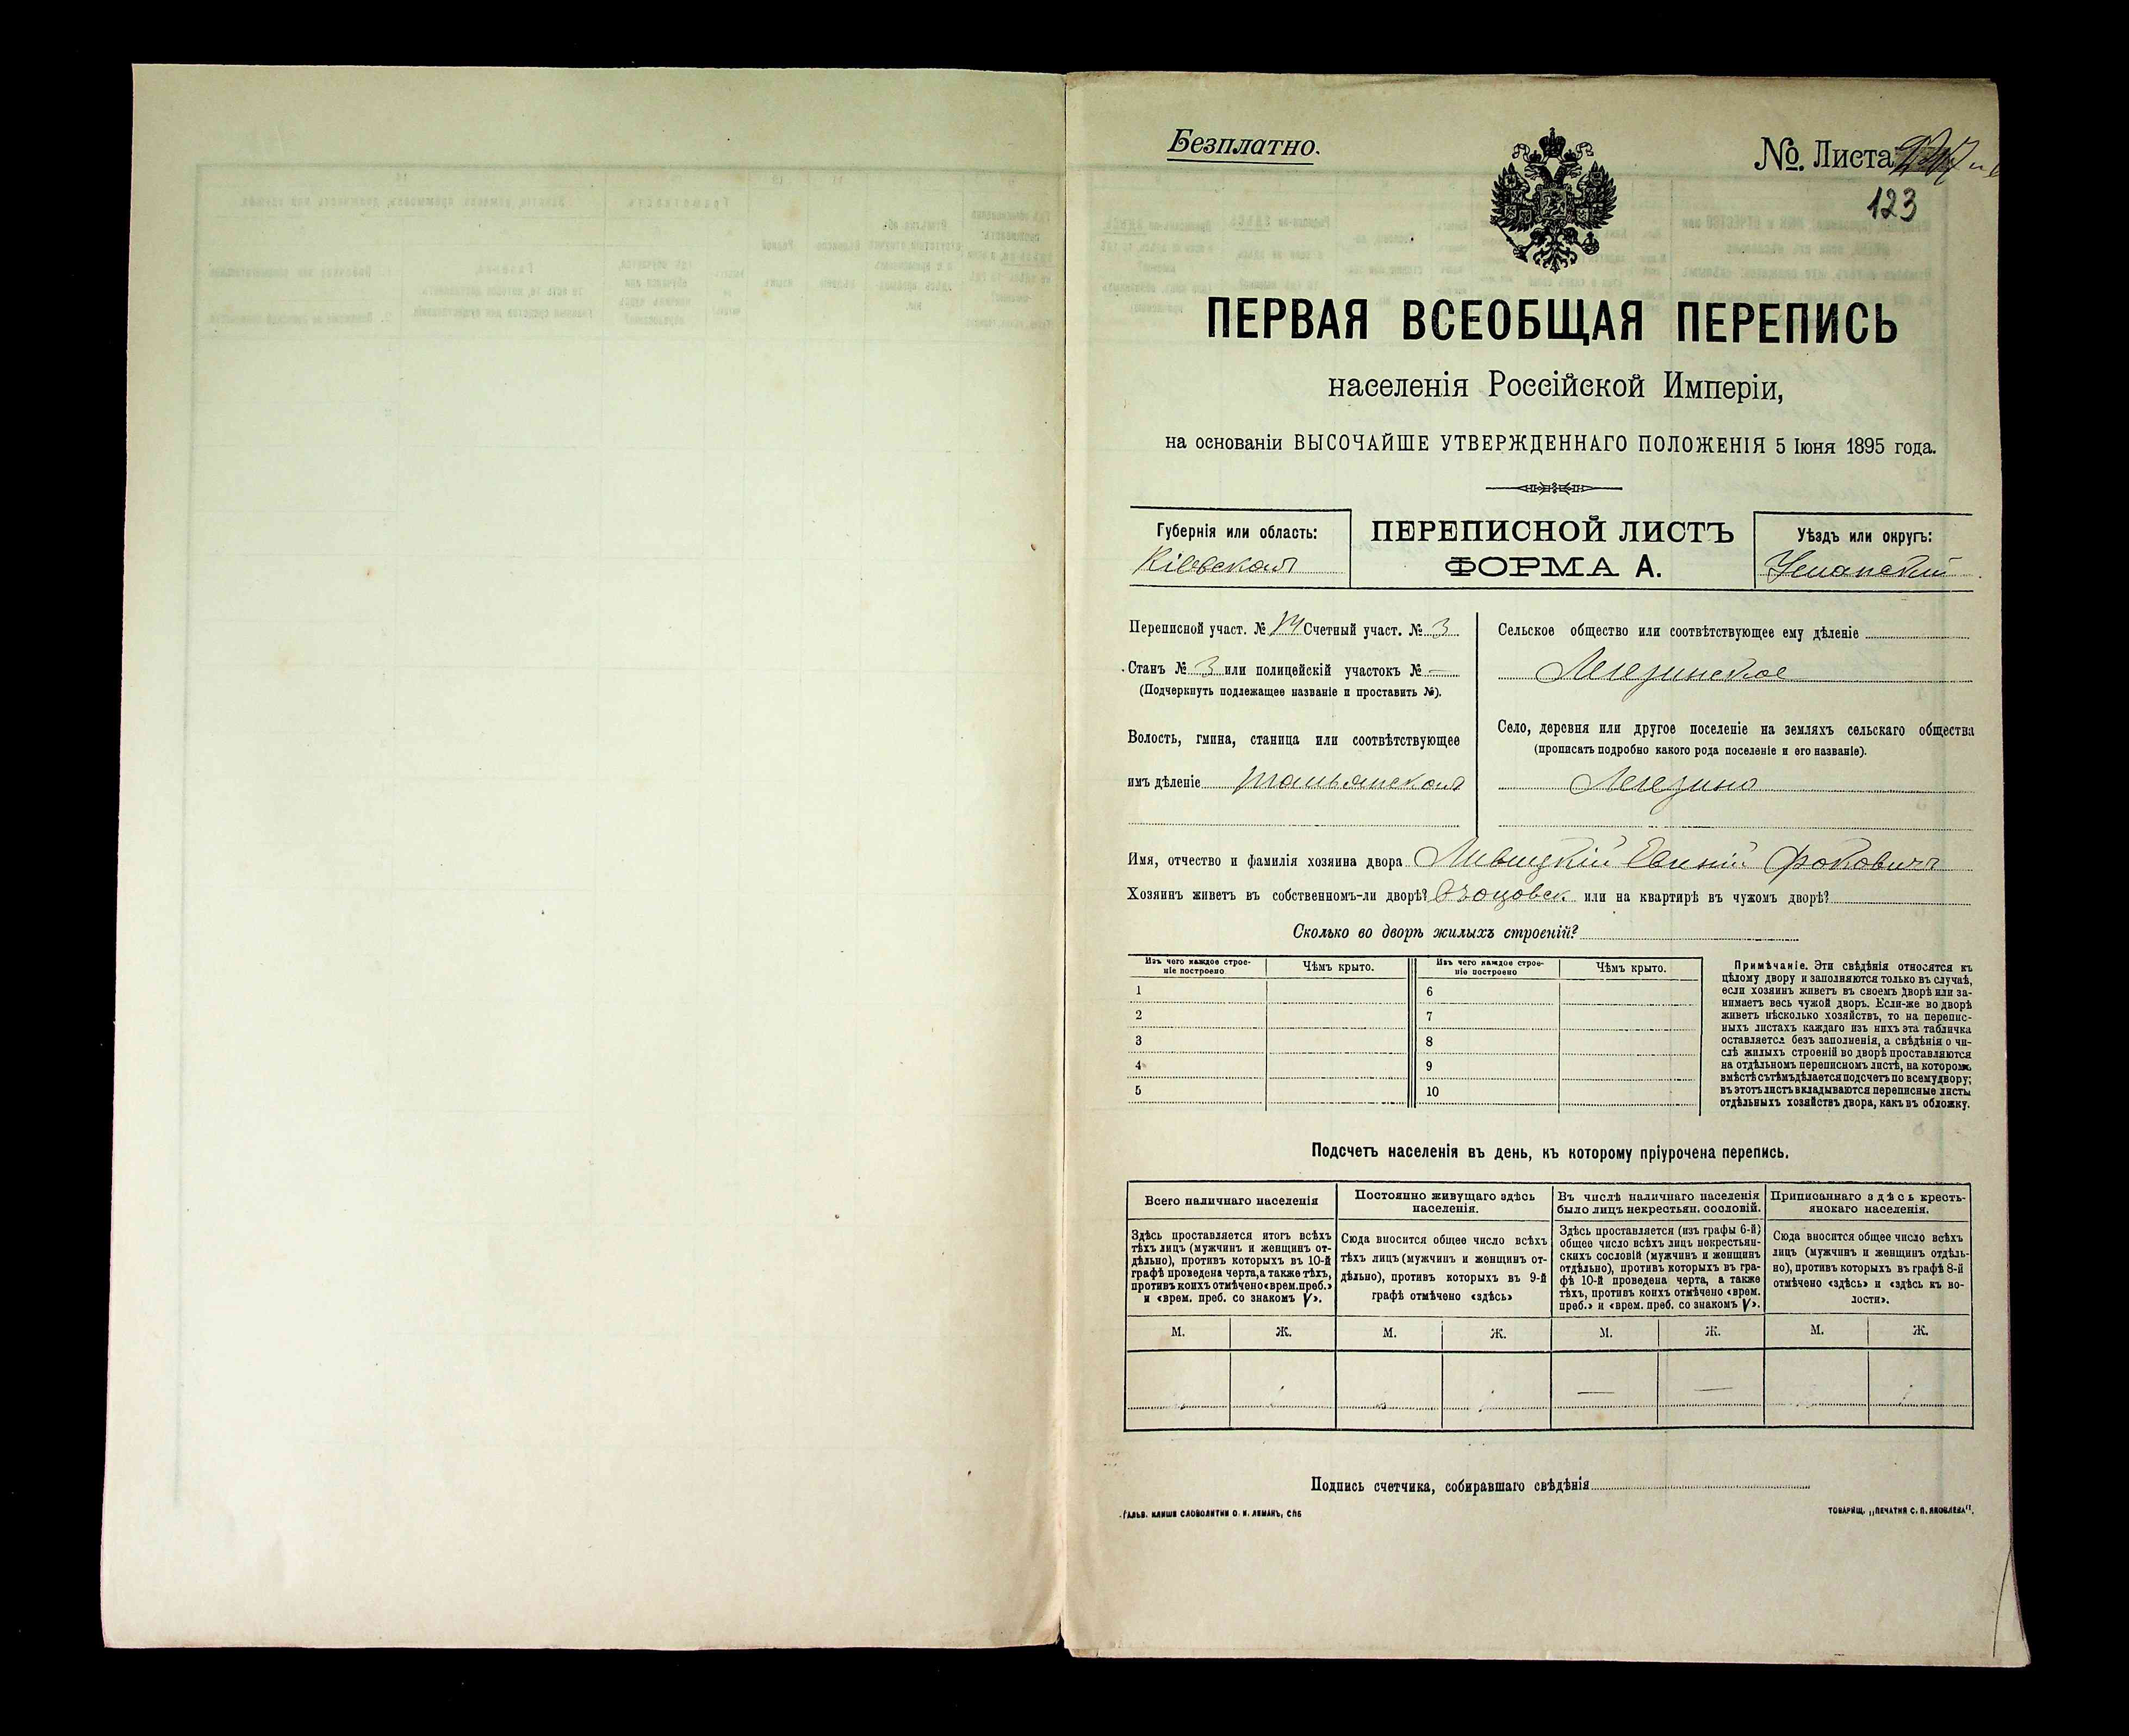 Безплатно.
№ Листа
123
ПЕРВАЯ ВСЕОБЩАЯ ПЕРЕПИСЬ
населенія Россійской Имперіи,
на основаніи ВЫСОЧАЙШЕ УТВЕРЖДЕННАГО ПОЛОЖЕНІЯ 5 Іюня 1895 года.
Губернія или область:
Кіевская
ПЕРЕПИСНОЙ ЛИСТЪ
ФОРМА А.
Уѣздъ или округъ:
Уманскій
Переписной участ. № 14 Счетный участ. № 3
Станъ № 3 или полицейскій участокъ № —
(Подчеркнуть подлежащее названіе и проставить №).
Волость, гмина, станица или соотвѣтствующее
имъ дѣленіе Тальянская
Сельское общество или соотвѣтствующее ему дѣленіе
Легезинское
Село, деревня или другое поселеніе на земляхъ сельскаго общества
(прописать подробно какого рода поселеніе и его названіе).
Легезино
Имя, отчество и фамилія хозяина двора Ливицкій Фоковичъ
Хозяинъ живетъ въ собственномъ-ли дворѣ? или на квартирѣ въ чужомъ дворѣ?
Сколько во дворѣ жилыхъ строеній?
Изъ чего каждое строе-
ніе построено
Чѣмъ крыто.
Изъ чего каждое строе-
ніе построено
Чѣмъ крыто.
1 6
2 7
3 8
4 9
5 10
Примѣчаніе. Эти свѣдѣнія относятся къ
цѣлому двору и заполняются только въ случаѣ,
если хозяинъ живетъ въ своемъ дворѣ или за-
нимаетъ весь чужой дворъ. Если-же во дворѣ
живетъ нѣсколько хозяйствъ, то на перепис-
ныхъ листахъ каждаго изъ нихъ эта табличка
оставляется безъ заполненія, а свѣдѣнія о чи-
слѣ жилыхъ строеній во дворѣ проставляются
на отдѣльномъ переписномъ листѣ, на которомъ
вмѣстѣ съ тѣмъ дѣлается подсчетъ по всему двору;
въ этотъ листъ вкладываются переписные листы
отдѣльныхъ хозяйствъ двора, какъ въ обложку.
Подсчетъ населенія въ день, къ которому пріурочена перепись.
Всего наличнаго населенія
Здѣсь проставляется итогъ всѣхъ
тѣхъ лицъ (мужчинъ и женщинъ от-
дѣльно), противъ которыхъ въ 10-й
графѣ проведена черта, а также тѣхъ,
противъ коихъ отмѣчено «врем. преб.»
и «врем. преб. со знакомъ V».
Постоянно живущаго здѣсь
населенія.
Сюда вносится общее число всѣхъ
тѣхъ лицъ (мужчинъ и женщинъ от-
дѣльно), противъ которыхъ въ 9-й
графѣ отмѣчено «здѣсь»
Въ числѣ наличнаго населенія
было лицъ некрестьян. сословій.
Здѣсь проставляется (изъ графы 6-й)
общее число всѣхъ лицъ некрестьян-
скихъ сословій (мужчинъ и женщинъ
отдѣльно), противъ которыхъ въ гра-
фѣ 10-й проведена черта, а также
тѣхъ, противъ коихъ отмѣчено «врем.
преб.» и «врем. преб. со знакомъ V».
Приписаннаго здѣсь кресть-
янскаго населенія.
Сюда вносится общее число всѣхъ
лицъ (мужчинъ и женщинъ отдѣль-
но), противъ которыхъ въ графѣ 8-й
отмѣчено «здѣсь» и «здѣсь къ во-
лости».
М. Ж. М. Ж. М. Ж. М. Ж.
— —
Подпись счетчика, собиравшаго свѣдѣнія
ГАЛЬВ. КЛИШЕ СЛОВОЛИТНИ О. И. ЛЕМАНЪ, СПБ
ТОВАРИЩ. „ПЕЧАТНЯ С. П. ЯКОВЛЕВА".